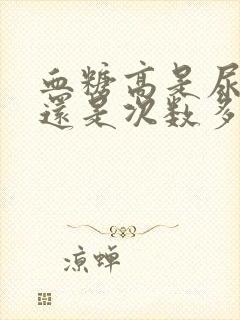 血糖高是尿
還是次数多
凉蝉